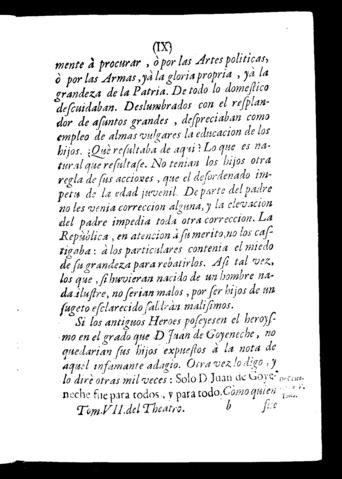 (IX)
mente à procurar, ò por las Artes politicas,
ò por las Armas, yà la gloria propria, yà la
grandeza de la Patria. De todo lo domestico
descuidaban. Deslumbrados con el resplan-
dor de asuntos grandes, despreciaban como
empleo de almas vulgares la educacion de los
hijos. ¿Què resultaba de aqui? Lo que es na-
tural que resultase. No tenian los hijos otra
regla de sus acciones, que el desordenado im-
petu de la edad juvenil. De parte del padre
no les venia correccion alguna, y la elevacion
del padre impedia toda otra correccion. La
Republica, en atencion à su merito, no los cas-
tigaba: à los particulares contenia el miedo
de su grandeza para rebatirlos. Asi tal vez,
los que, si huvieran nacido de un hombre na-
da ilustre, no serian malos, por ser hijos de un
sugeto esclarecido saldràn malisimos.
Si los antiguos Heroes poseyesen el heroys-
mo en el grado que D Juan de Goyeneche, no
quedarian sus hijos expuestos à la nota de
aquel infamante adagio. Otra vez lo digo, y
lo dirè otras mil veces: Solo D Juan de Goye-
neche fue para todos, y para todo. Còmo quien
Tom. VII. del Theatro. b fue